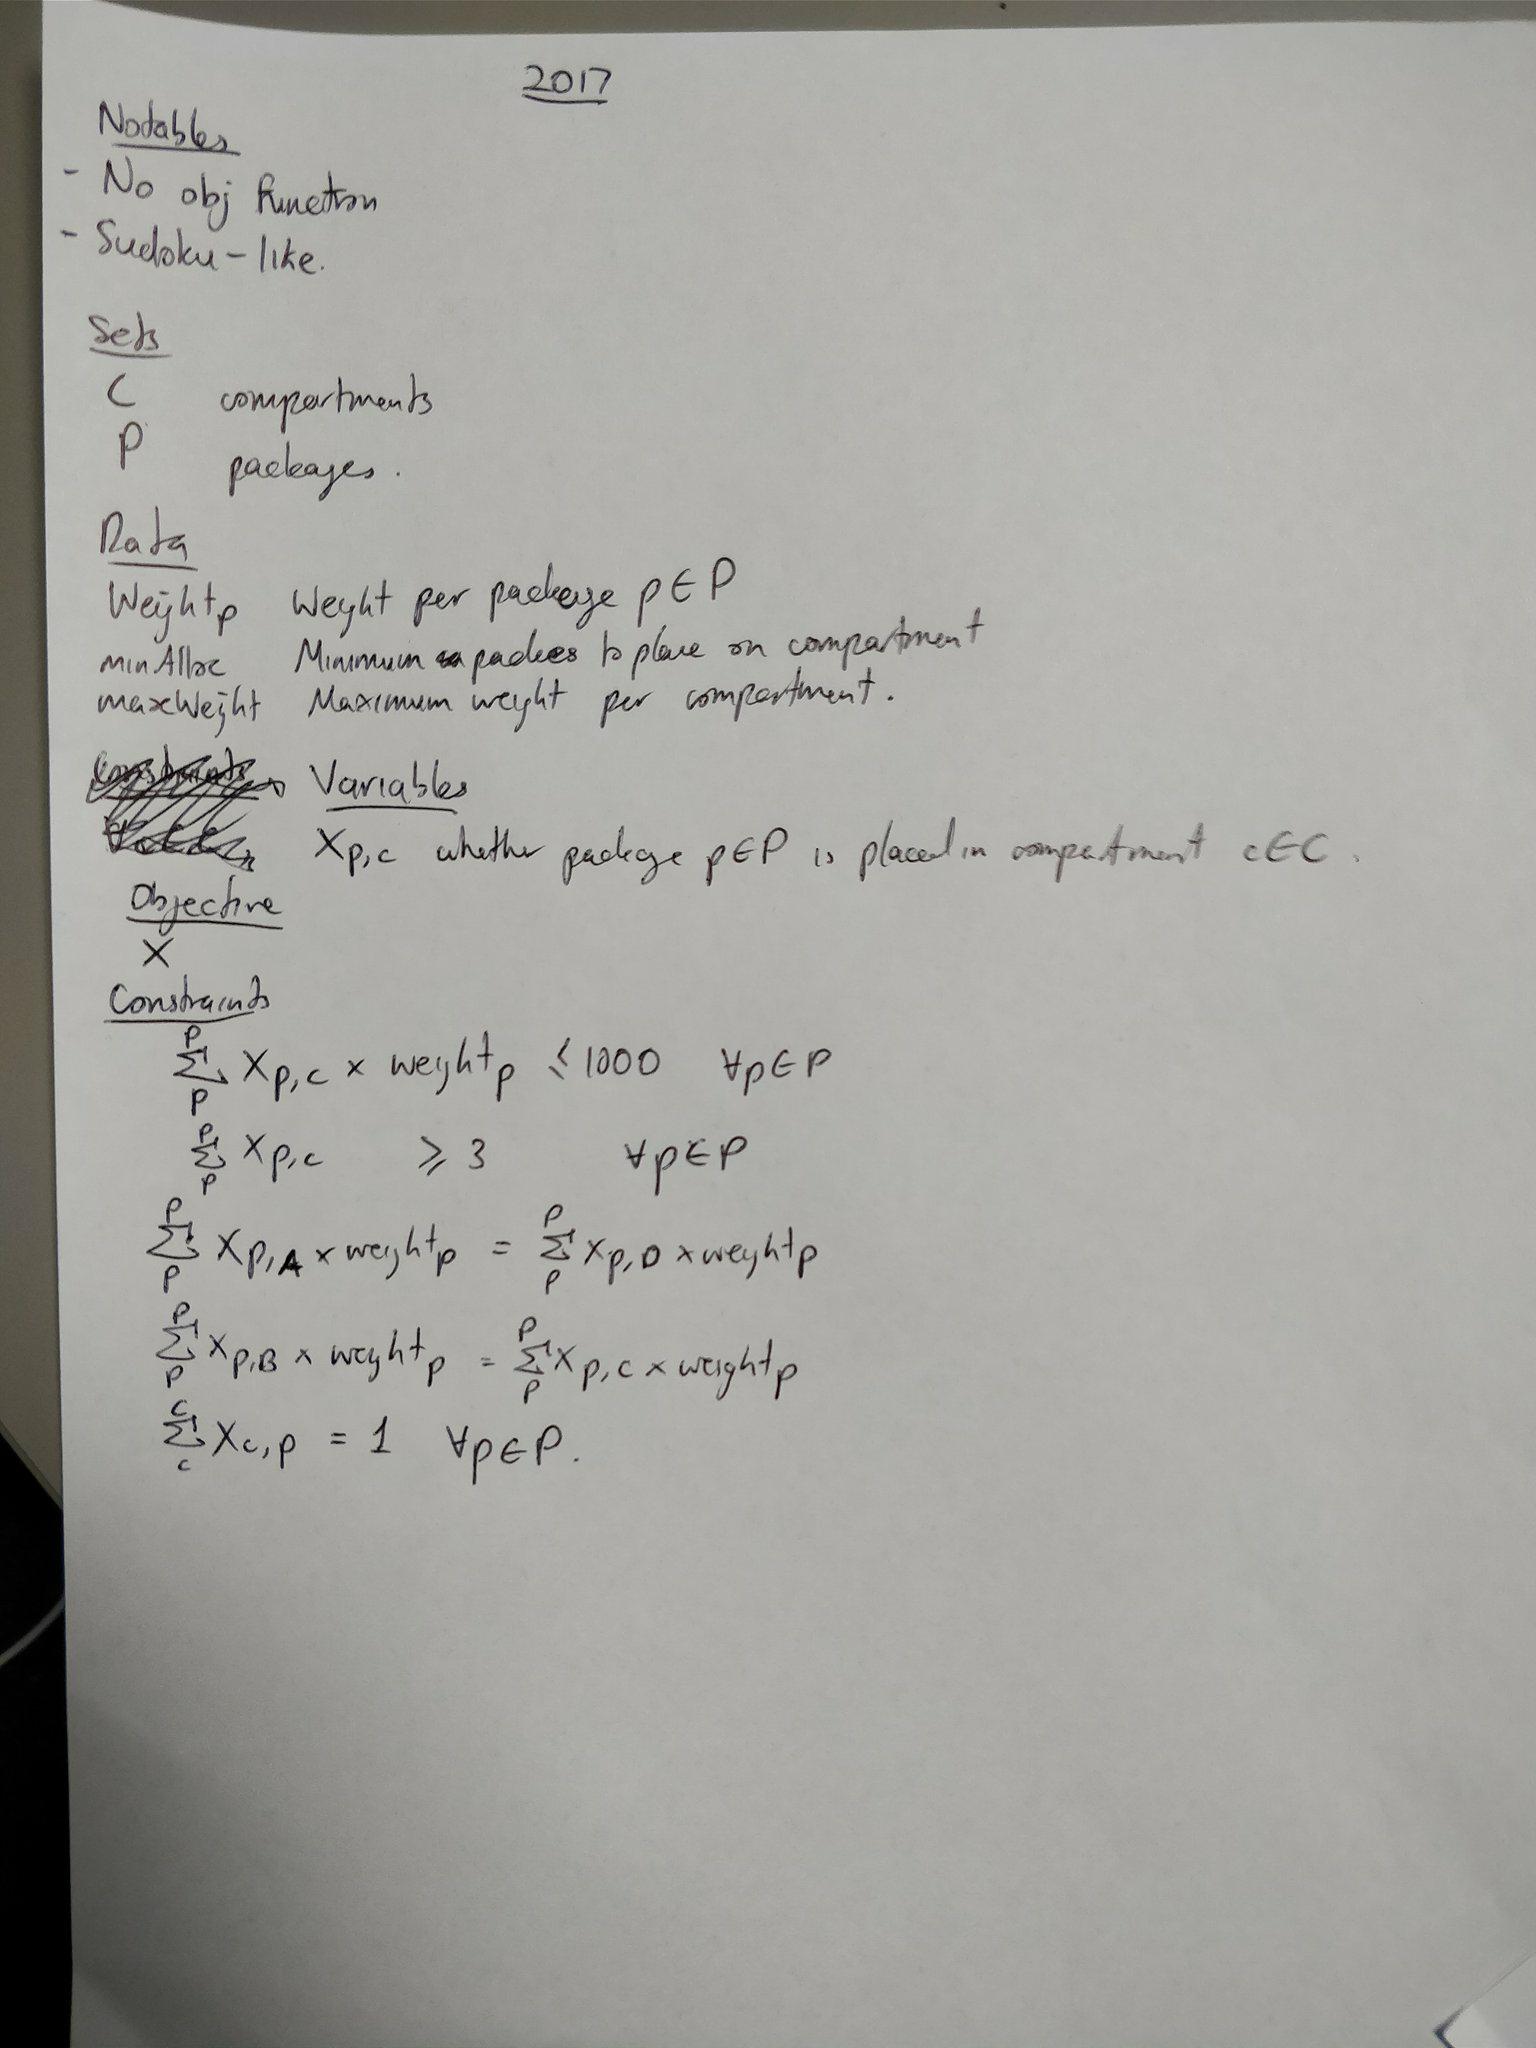 2017
Notables
- No obj function
- Sudoku-like.
Sets
C compartments
P packages.
Data
Weight_p Weight per package p∈P
minAlloc Minimum packes to place on compartment
maxWeight Maximum weight per compartment.
Variables
X_p,c whether package p∈P is placed in compartment c∈C.
Objective
X
Constraints
∑_p^P X_p,c × weight_p ≤ 1000 ∀p∈P
∑_p^P X_p,c ≥ 3 ∀p∈P
∑_p^P X_p,A × weight_p = ∑_p^P X_p,D × weight_p
∑_p^P X_p,B × weight_p = ∑_p^P X_p,C × weight_p
∑_c^C X_c,p = 1 ∀p∈P.